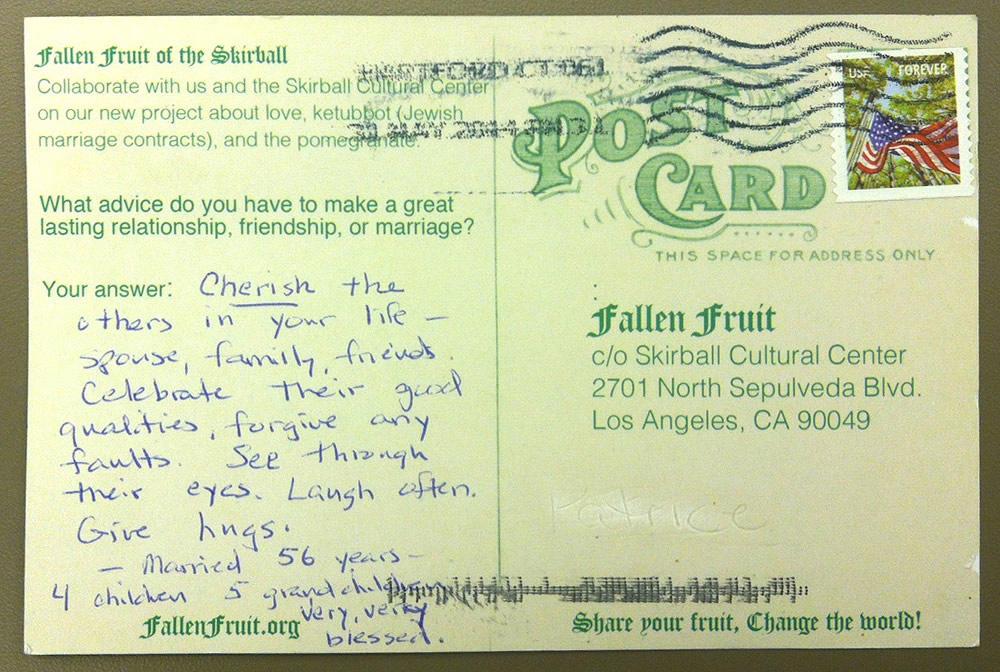 Fallen Fruit of the Skirball
Collaborate with us and the Skirball Cultural Center
on our new project about love, ketubbot (Jewish
marriage contracts), and the pomegranate.
What advice do you have to make a great
lasting relationship, friendship, or marriage?
Your answer: Cherish the
others in your life –
spouse, family, friends.
Celebrate their good
qualities, forgive any
faults. See through
their eyes. Laugh often.
Give hugs.
– Married 56 years –
4 children 5 grandchildren
very, very
blessed.
FallenFruit.org
HARTFORD CT 061
USA FOREVER
POST CARD
THIS SPACE FOR ADDRESS ONLY
Fallen Fruit
c/o Skirball Cultural Center
2701 North Sepulveda Blvd.
Los Angeles, CA 90049
Patrice
Share your fruit, Change the world!